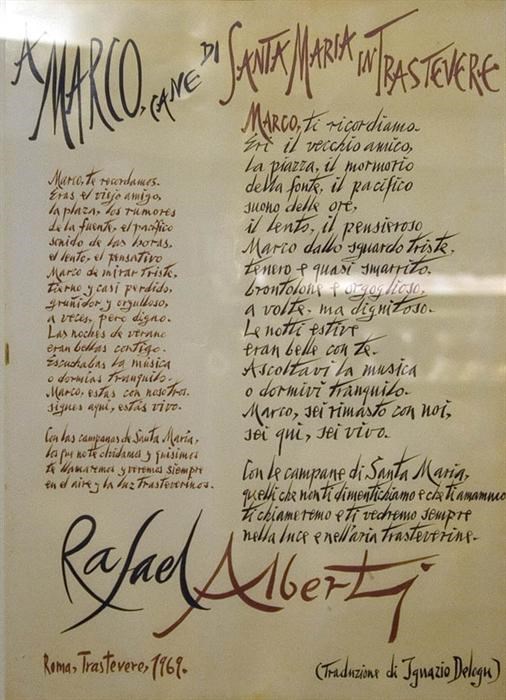 A MARCO, CANE DI SANTA MARIA IN TRASTEVERE
Marco, te recordamos.
Eras el viejo amigo,
la plaza, los rumores
de la fuente, el pacífico
sonido de las horas,
el lento, el pensativo
Marco de mirar triste,
tierno y casi perdido,
gruñidor y orgulloso,
a veces, pero digno.
Las noches de verano
eran bellas contigo.
Escuchabas la música
o dormías tranquilo.
Marco, estás con nosotros.
sigues aquí, estás vivo.
Con las campanas de Santa María,
los que no te olvidamos y quisimos
te llamaremos y veremos siempre
en el aire y la luz trasteverinos.
MARCO, ti ricordiamo.
Eri il vecchio amico,
la piazza, il mormorio
della fonte, il pacifico
suono delle ore,
il lento, il pensieroso
Marco dallo sguardo triste,
tenero e quasi smarrito.
brontolone e orgoglioso,
a volte, ma dignitoso.
Le notti estive
eran belle con te.
Ascoltavi la musica
o dormivi tranquilo.
Marco, sei rimasto con noi,
sei qui, sei vivo.
Con le campane di Santa Maria,
quelli che non ti dimentichiamo e che ti amammo
ti chiameremo e ti vedremo sempre
nella luce e nell'aria trasteverine.
Rafael Alberti
Roma, Trastevere, 1969.
(Traduzione di Ignazio Delogu)